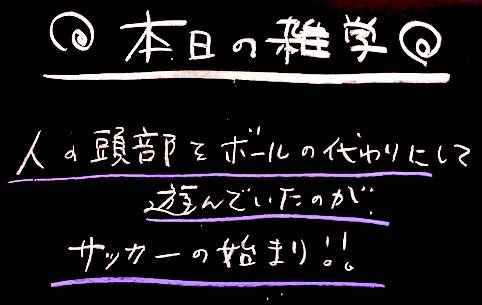 本日の雑学
人の頭部をボールの代わりにして
遊んでいたのが
サッカーの始まり!!